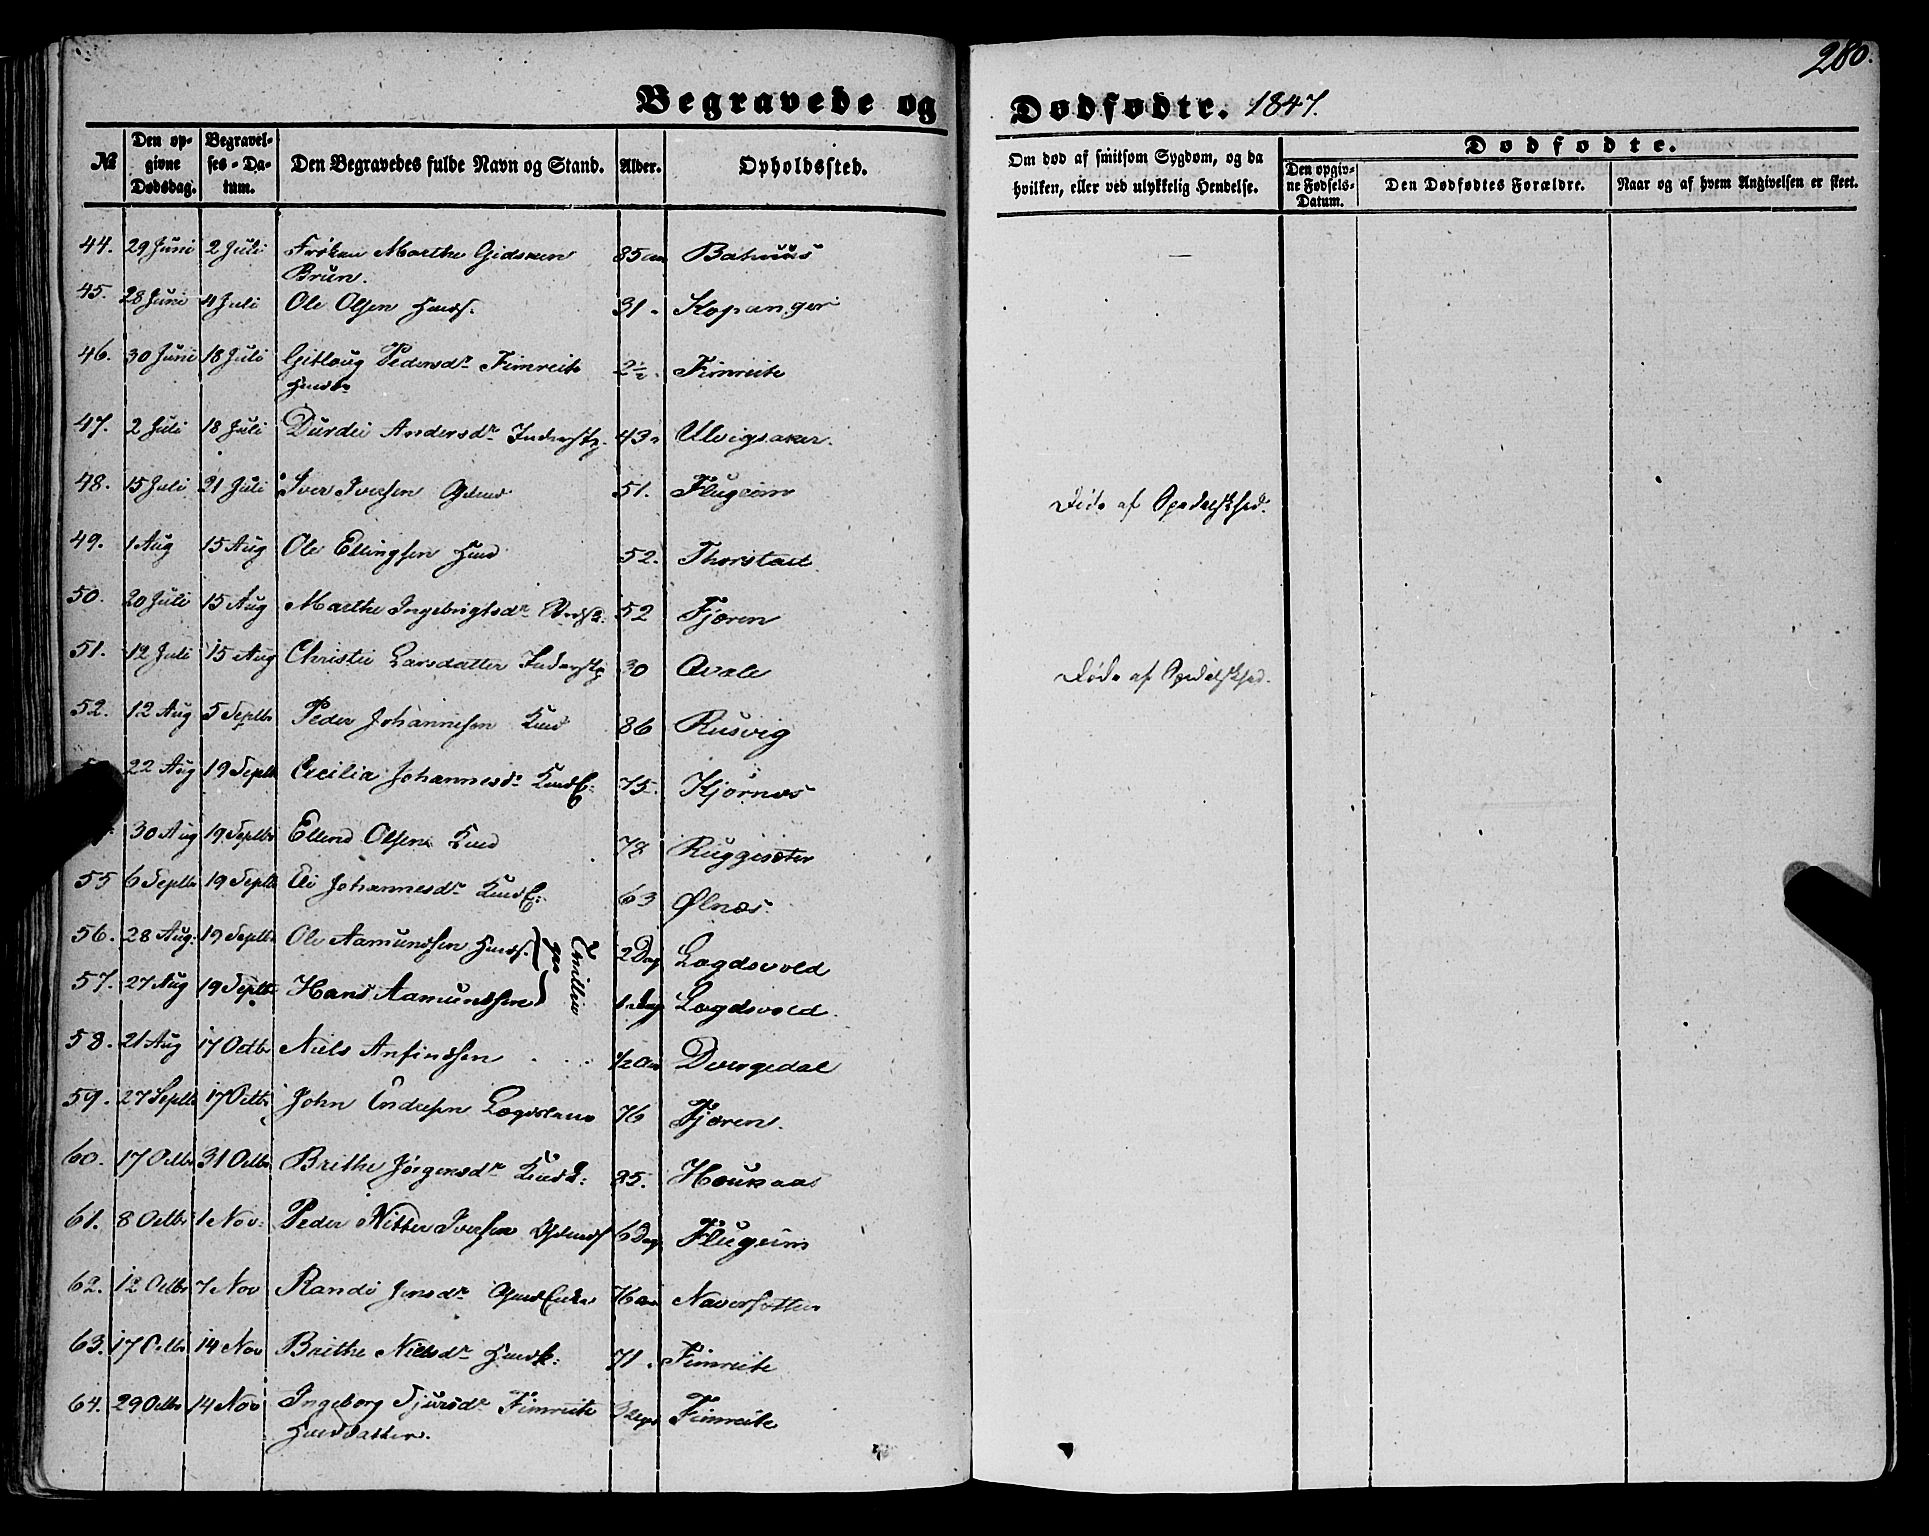 280.
Begravede og Dødfødte. 1847.
№ Den opgivne Dødsdag. Begravelses-Datum. Den Begravedes fulde Navn og Stand. Alder. Opholdssted. Om død af smitsom Sygdom, og da hvilken, eller ved ulykkelig Hendelse. Dødfødte. Den opgivne Fødsels-Datum. Den Dødfødtes Forældre. Naar og af hvem Angivelsen er skeet.
44. 29 Juni 2 Juli Frøken Marthe Gidsken 85
Brun.
45. 28 Juni 4 Juli Ole Olsen 31 Kopanger
46. 30 Juni 18 Juli Gitloug Pedersdr Fimreite 2½ Fimreite
47. 2 Juli 18 Juli Durdei Andersdr 43 Ulvigsaker.
48. 15 Juli 21 Juli Iver Iversen 51. Flugeim Døde af Spedalskhed.
49. 1 Aug 15 Aug Ole Ellingsen 52. Thorstad
50. 20 Juli 15 Aug Marthe Ingebrigtsdr 52 Fjæren
51. 12 Juli 15 Aug Christie Larsdatter 30 Qvale Døde af Spedalskhed.
52. 12 Aug 5 Septbr Peder Johannesen 86 Rusvig
22 Aug 19 Septbr Cecilia Johannesdr 75. Kjørnæs
30 Aug 19 Septbr Ellend Olsen 78 Ruggesæter
55 6 Septbr 19 Septbr Eli Johannesdr 63 Ølnæs.
56. 28 Aug. 19 Septbr Ole Aamundsen 2 Dag Lægdevold
57. 27 Aug 19 Septbr Hans Aamundsen 1 Dag Lægdevold.
Tvillinger
58. 21 Aug 17 Octbr Niels Anfindsen ½ Aar Dvergedal
59. 27 Septbr 17 Octbr John Endresen Lægdslem 76 Fjæren.
60. 17 Octbr 31 Octbr Brithe Jørgensdr Houkaas
61. 8 Octbr 1 Nov. Peder Nitter Iversen 6 Dage Flugeim
62. 12 Octbr 7 Nov Randi Jensdr 76 Naversætter
63. 17 Octbr 14 Nov Brithe Nielsdr 71. Fimreite
64. 29 Octbr 14 Nov Ingeborg Sjursdr Fimreite 3 Fimreite
Huusdatter.